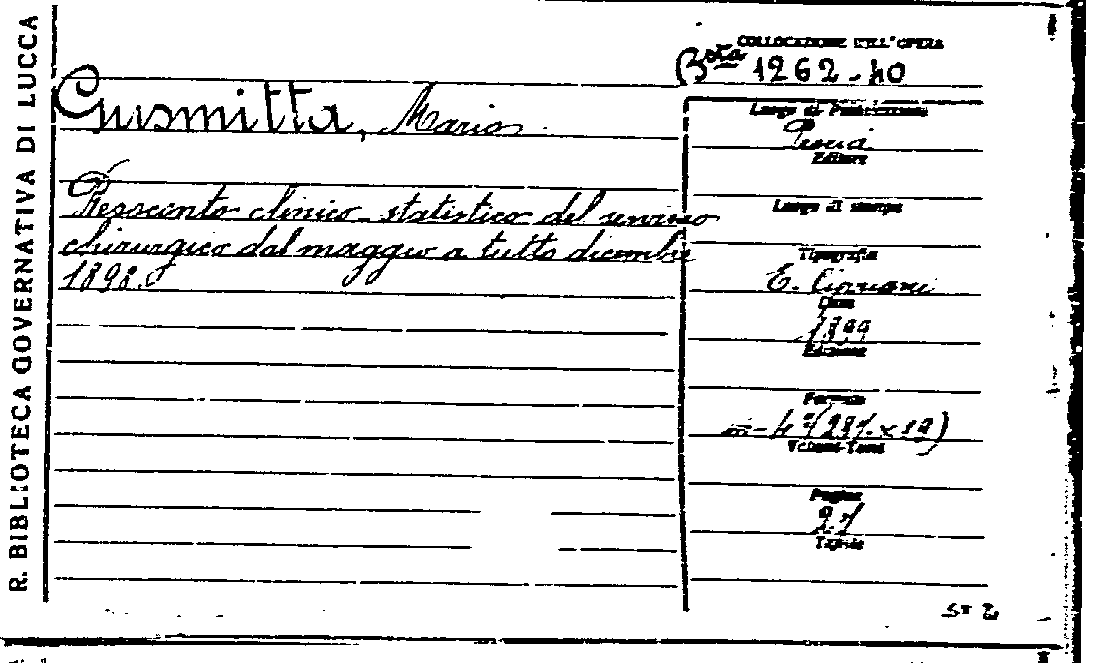 R. BIBLIOTECA GOVERNATIVA DI LUCCA
COLLOCAZIONE DELL'OPERA
Bsta 1262-40
Gusmitta, Mario
Resoconto clinico-statistico del servizio
chirurgico dal maggio a tutto dicembre
1898.
Luogo di Pubblicazione
Pescia
Editore
Luogo di stampa
Tipografia
E. Cipriani
Data
1899
Edizione
Formato
in-4°
Volume-Tomo
Pagine
27
Tavole